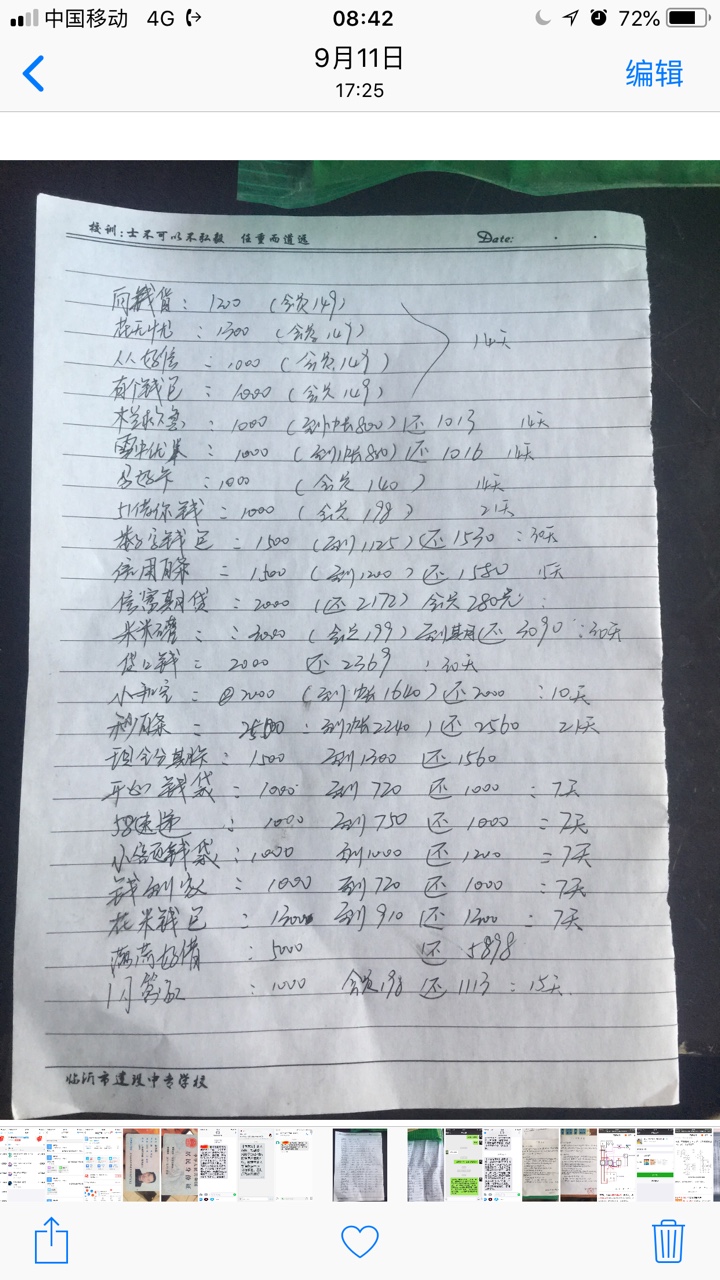 中国移动 4G 08:42 72%
9月11日
17:25
编辑
校训:士不可以不弘毅 任重而道远 Date:
向钱贷: 1200 (会员149)
花无忧: 1300 (会员149) 14天
人人好信: 1000 (会员149)
有个钱包: 1000 (会员149)
: 1000 (到帐800) 还1013 14天
雪中优米: 1000 (到帐800) 还1016 14天
:1000 (会员140) 14天
51借你钱: 1000 (会员198) 21天
数字钱包: 1500 (到1125) 还1530 :30天
信用白条= 1500 (到1200) 还1580 15天
信富期贷:2000 (还2172) 会员280元:
米米罐::3000 (会员199) 到期还3090:30天
借口钱: 2000 还2369 :30天
小和宝:2000 (到帐1640) 还2000 :10天
秒白条= 2500:到帐2240) 还2560 21天
现金分期:1500 到1300 还1560
开心钱袋:1000 到720 还1000 :7天
58速递: 1000 到750 还1000 =7天
钱袋:1000 到1000 还1200 =7天
钱到家:1000 到720 还1000 :7天
花米钱包:1300 到910 还1300 :7天
满满好借:5000 还5898
:1000 会员198 还1113:15天
临沂市道理中专学校